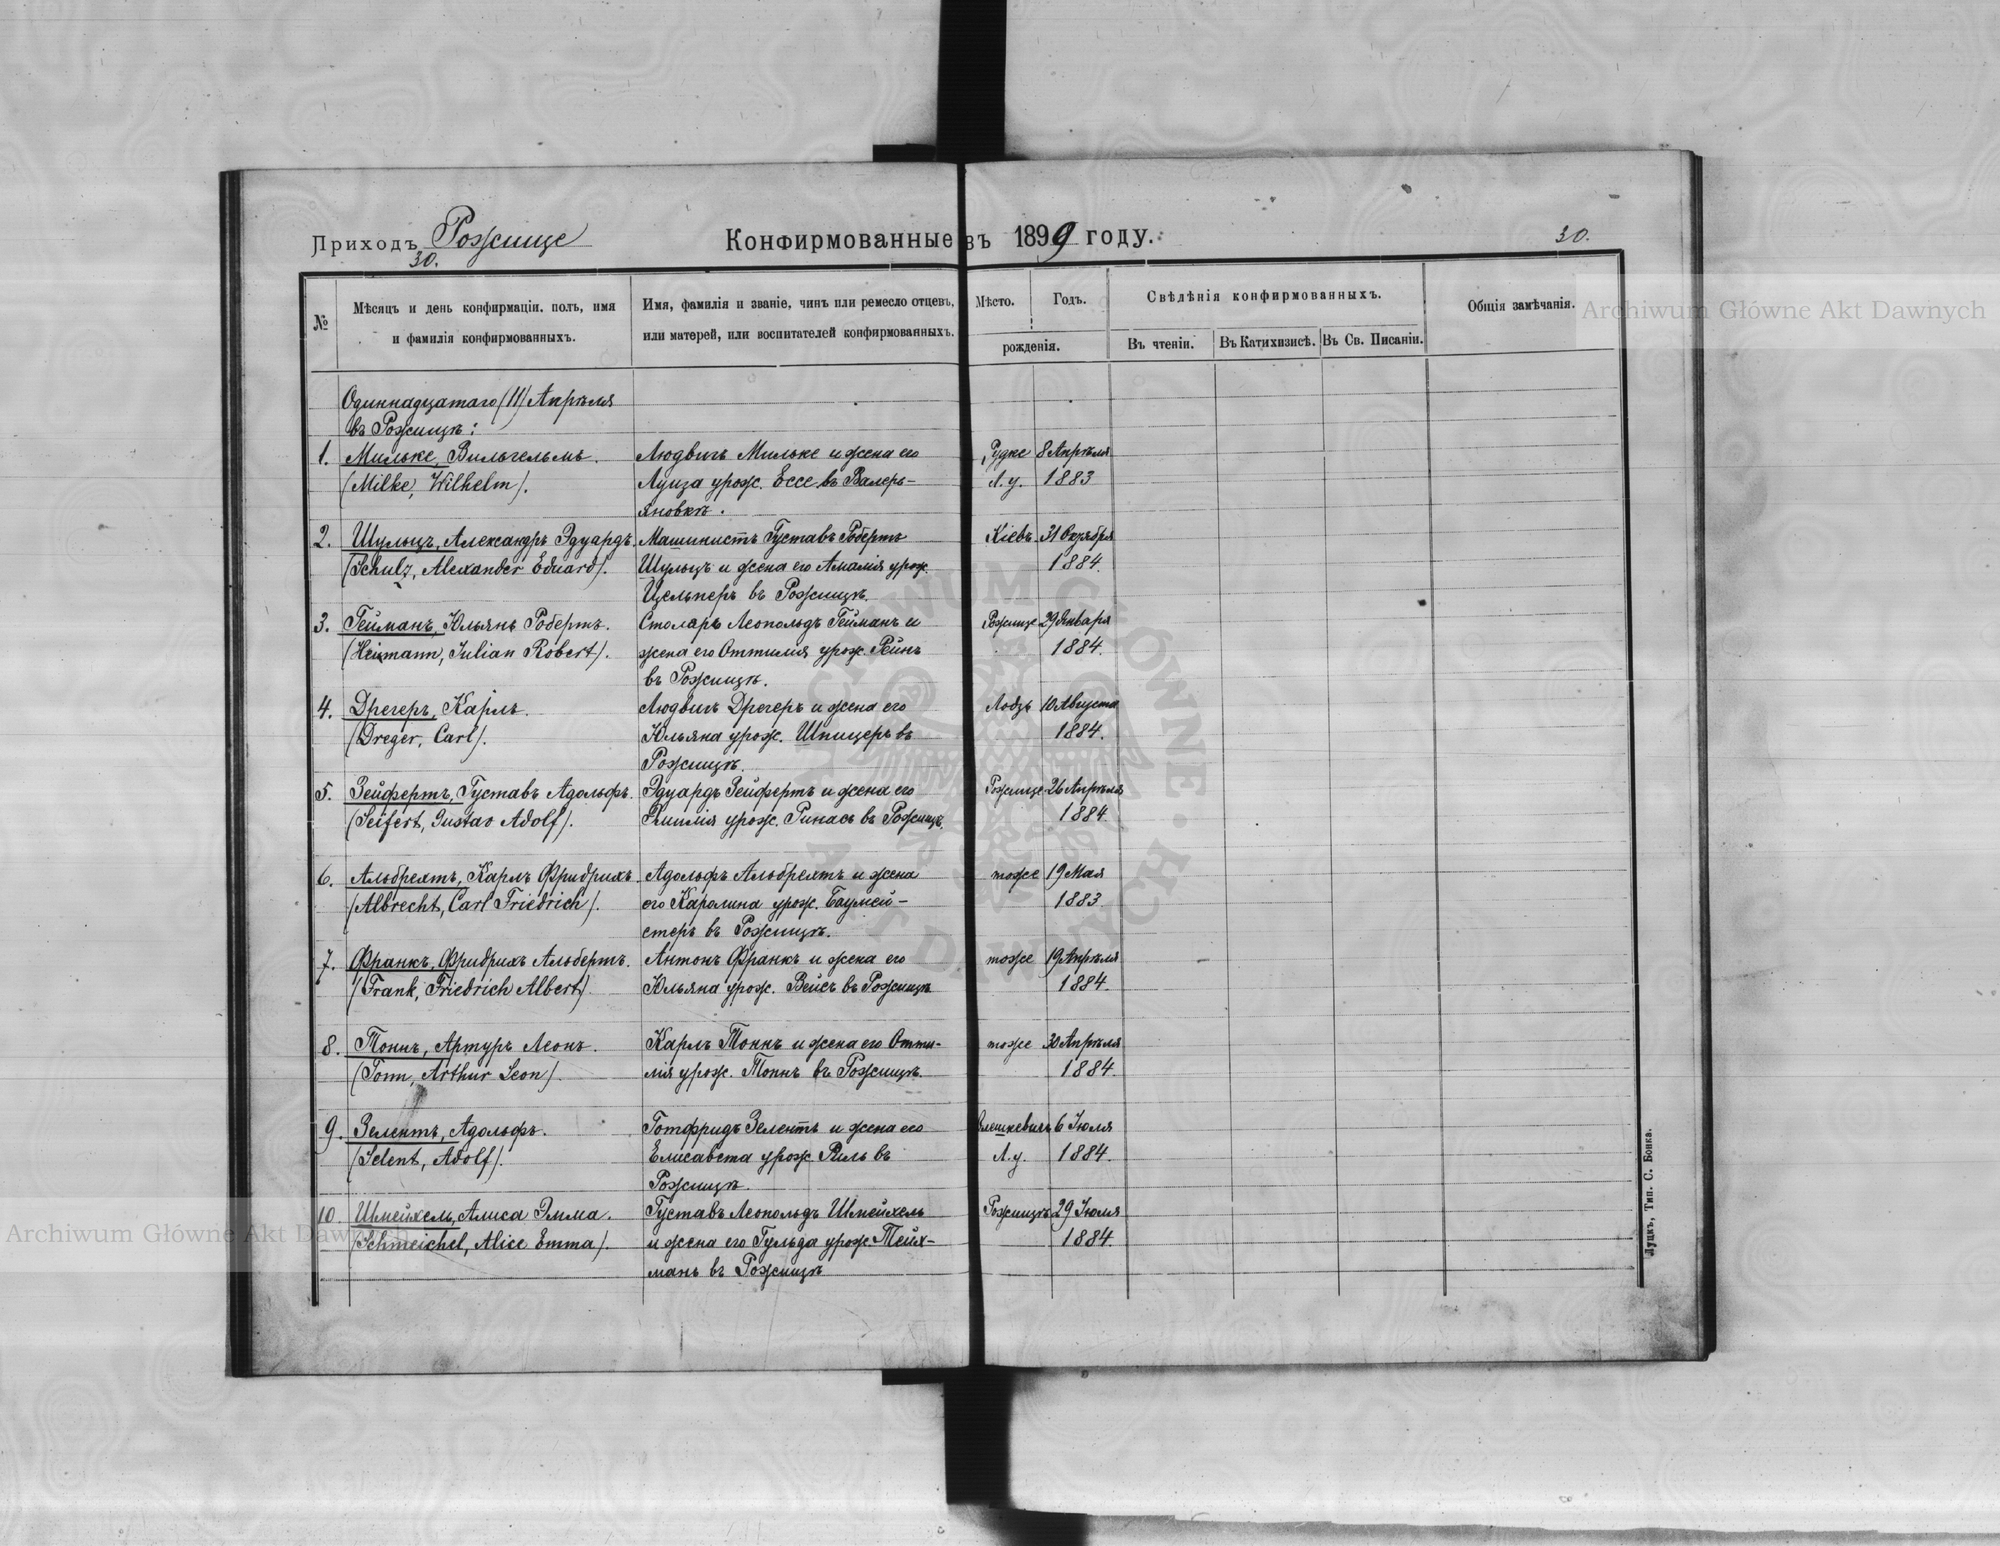 Приходъ Рожище
Конфирмованные въ 1899 году.
30.
30.
№
Мѣсяцъ и день конфирмаціи. полъ, имя
и фамилія конфирмованныхъ.
Имя, фамилія и званіе, чинъ или ремесло отцевъ,
или матерей, или воспитателей конфирмованныхъ.
Мѣсто.
Годъ.
рожденія.
Свѣдѣнія конфирмованныхъ.
Въ чтеніи.
Въ Катихизисѣ.
Въ Св. Писаніи.
Общія замѣчанія.
Одиннадцатаго (11) Апрѣля
въ Рожищѣ:
1. Мильке, Вильгельмъ. Людвигъ Мильке и жена его Рудке 8 Апрѣля
(Milke, Wilhelm). Луиза урож. Ессе въ Валерь- Л.у. 1883
яновкѣ.
2. Шульцъ, Александръ Эдуардъ. Машинистъ Густавъ Робертъ Кіевъ 31 Октября
(Schulz, Alexander Eduard). Шульцъ и жена его Амалія урож. 1884.
Цельнеръ въ Рожищѣ.
3. Гейманъ, Юльянъ Робертъ. Столяръ Леопольдъ Гейманъ и Рожище 29 Января
(Heimann, Julian Robert). жена его Оттилія урож. Рейнъ 1884.
въ Рожищѣ.
4. Дрегеръ, Карлъ. Людвигъ Дрегеръ и жена его Лодзь 10 Августа
(Dreger, Carl). Юльяна урож. Шпицеръ въ 1884.
Рожищѣ.
5. Зейфертъ, Густавъ Адольфъ. Эдуардъ Зейфертъ и жена его Рожище 26 Апрѣля
(Seifert, Gustav Adolf). Эмилія урож. Ринасъ въ Рожищѣ. 1884.
6. Альбрехтъ, Карлъ Фридрихъ. Адольфъ Альбрехтъ и жена тоже 19 Мая
(Albrecht, Carl Friedrich). его Каролина урож. Баумей- 1883
стеръ въ Рожищѣ.
7. Франкъ, Фридрихъ Альбертъ. Антонъ Франкъ и жена его тоже 19 Апрѣля
(Frank, Friedrich Albert) Юльяна урож. Вейсъ въ Рожищѣ 1884.
8. Тоннъ, Артуръ Леонъ. Карлъ Тоннъ и жена его Отти- тоже 30 Апрѣля
(Tonn, Arthur Leon) лія урож. Тоннъ въ Рожищѣ 1884.
9. Зелентъ, Адольфъ. Готфридъ Зелентъ и жена его Олешкевичъ 6 Іюля
(Selent, Adolf). Елисавета урож. Риль въ Л.у. 1884.
Рожищѣ.
10. Шмейхель, Алиса Эмма. Густавъ Леопольдъ Шмейхель Рожищѣ 29 Іюля
(Schmeichel, Alice Emma). и жена его Гульда урож. Тейх- 1884.
манъ въ Рожищѣ
Луцкъ, Тип. С. Бонка.
Archiwum Główne Akt Dawnych
Archiwum Główne Akt Dawnych
ARCHIWUM GŁÓWNE AKT DAWNYCH